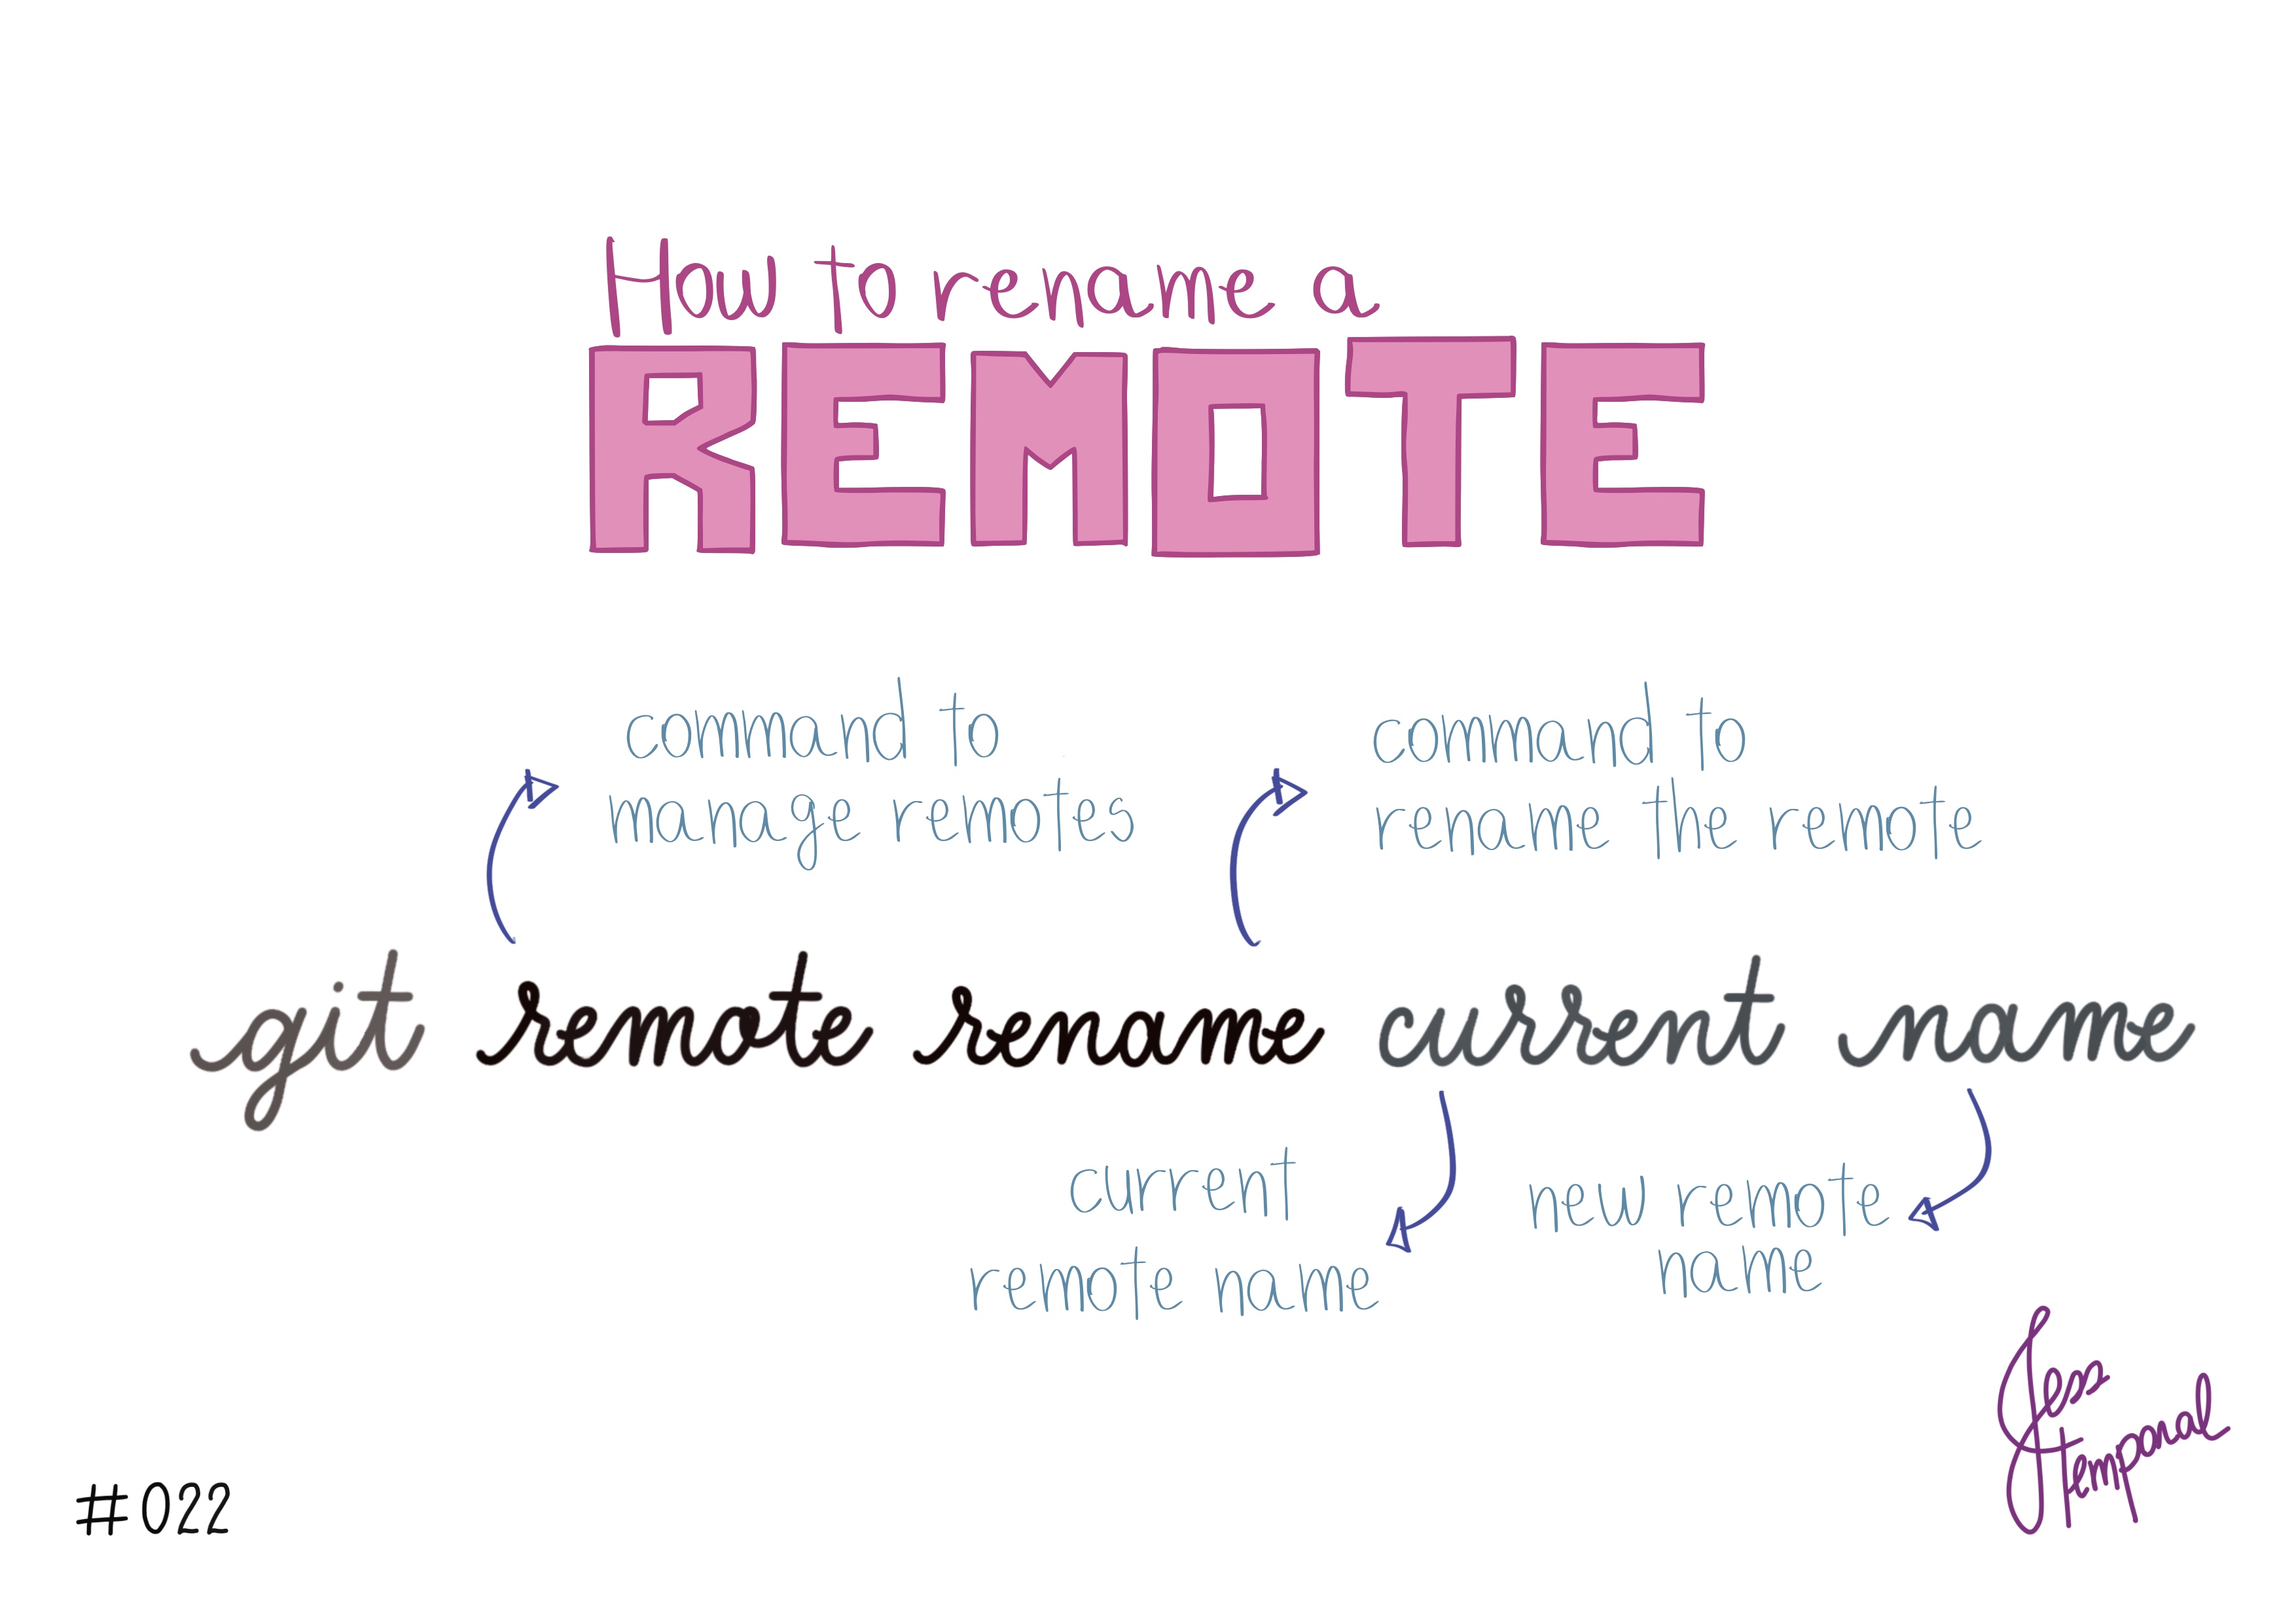 How to rename a
REMOTE
command to
manage remotes
command to
rename the remote
git remote rename current name
current
remote name
new remote
name
Jess
temporal
#022